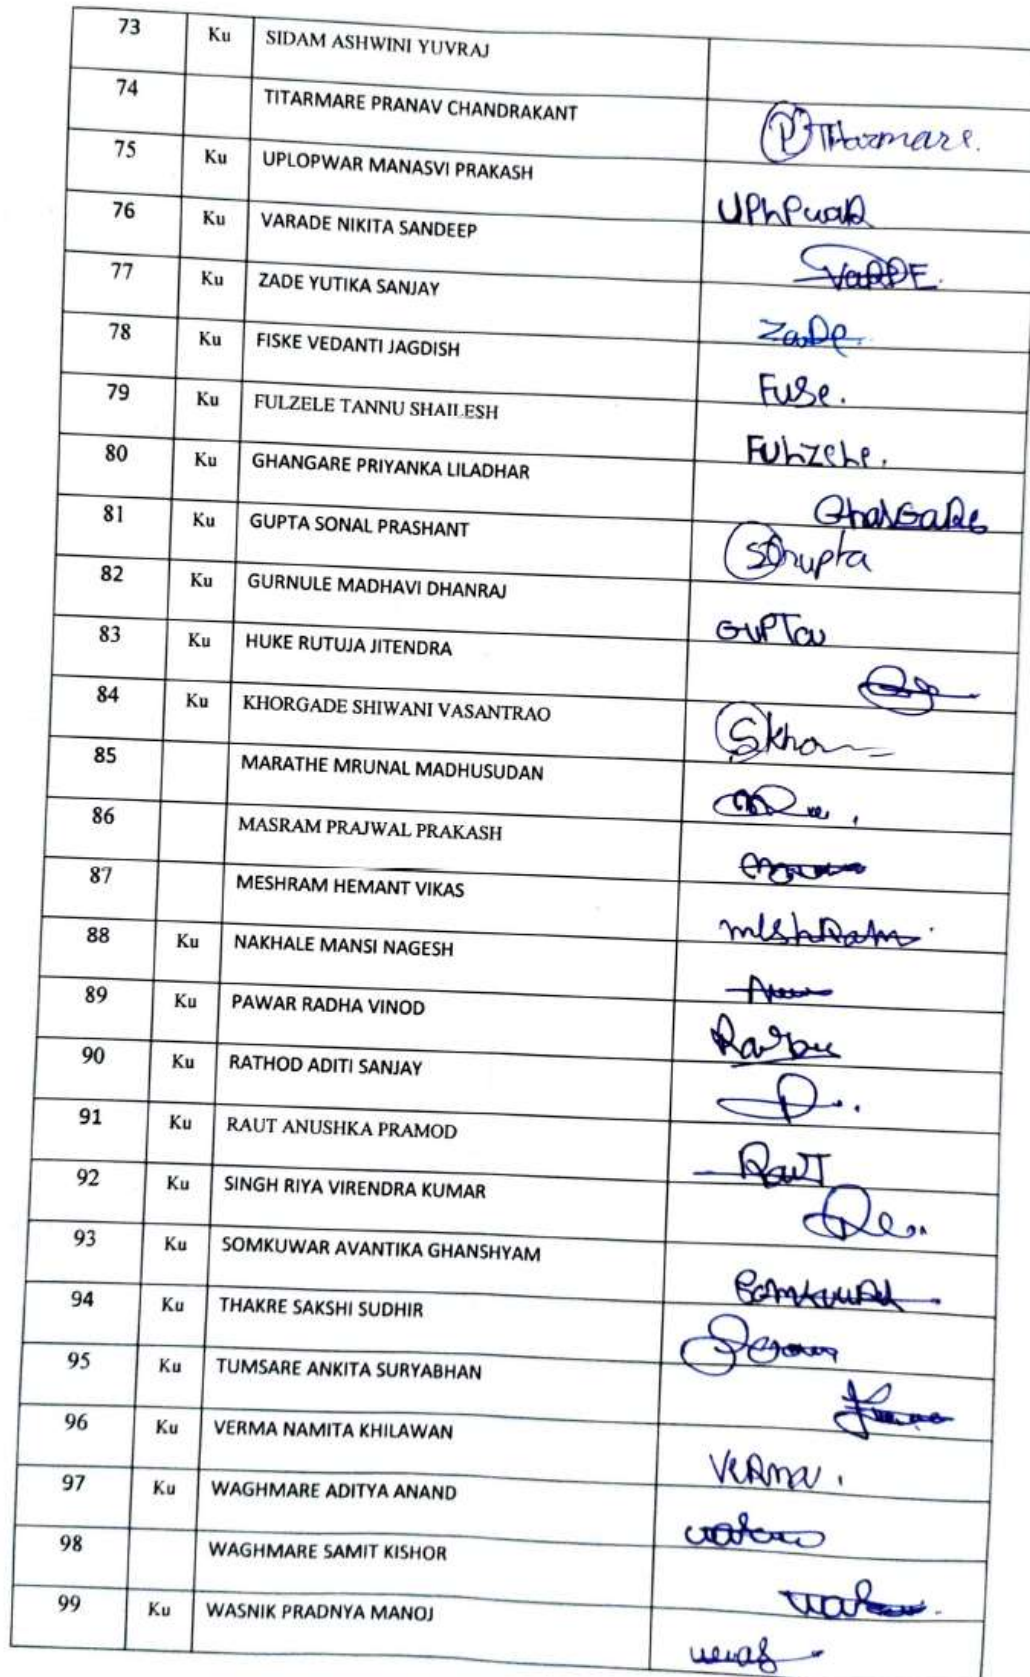 73 Ku SIDAM ASHWINI YUVRAJ
74 TITARMARE PRANAV CHANDRAKANT P Titarmare.
75 Ku UPLOPWAR MANASVI PRAKASH
76 Ku VARADE NIKITA SANDEEP
77 Ku ZADE YUTIKA SANJAY Zade
78 Ku FISKE VEDANTI JAGDISH
79 Ku FULZELE TANNU SHAILESH Fulzele.
80 Ku GHANGARE PRIYANKA LILADHAR GhanGaRe
81 Ku GUPTA SONAL PRASHANT SGupta
82 Ku GURNULE MADHAVI DHANRAJ GUPTa
83 Ku HUKE RUTUJA JITENDRA
84 Ku KHORGADE SHIWANI VASANTRAO
85 MARATHE MRUNAL MADHUSUDAN
86 MASRAM PRAJWAL PRAKASH
87 MESHRAM HEMANT VIKAS meshRam
88 Ku NAKHALE MANSI NAGESH
89 Ku PAWAR RADHA VINOD
90 Ku RATHOD ADITI SANJAY
91 Ku RAUT ANUSHKA PRAMOD RauT
92 Ku SINGH RIYA VIRENDRA KUMAR
93 Ku SOMKUWAR AVANTIKA GHANSHYAM
94 Ku THAKRE SAKSHI SUDHIR
95 Ku TUMSARE ANKITA SURYABHAN
96 Ku VERMA NAMITA KHILAWAN VeRma.
97 Ku WAGHMARE ADITYA ANAND
98 WAGHMARE SAMIT KISHOR
99 Ku WASNIK PRADNYA MANOJ